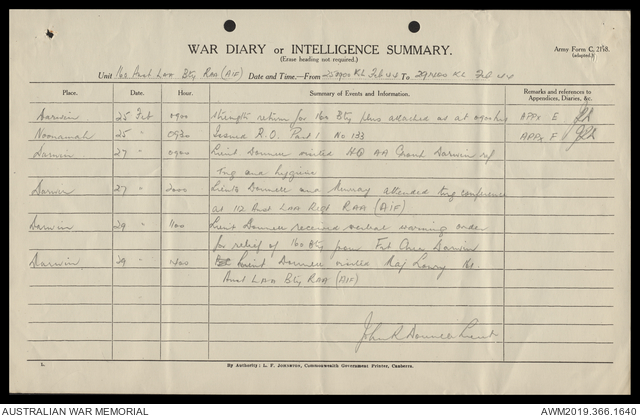 WAR DIARY or INTELLIGENCE SUMMARY.
(Erase heading not required.)
Army Form C. 2118.
(adapted.)
Unit 160 Aust LAA Bty RAA (AIF) Date and Time—From 250900 KL Feb 44 To 291400 KL Feb 44
Place. Date. Hour. Summary of Events and Information. Remarks and references to Appendices, Diaries, &c.
Darwin 25 Feb 0900 Strength return for 160 Bty plus attached as at 0900 hrs APPx E
Noonamah 25 " 0930 Issued R.O. Part 1 No 133 APPx F
Darwin 27 " 0900 Lieut Donnell visited HQ AA Darwin ref
Trg and hygiene
Darwin 27 " 2000 Lieuts Donnell and Murray attended trg conference
at 112 Aust LAA Regt RAA (AIF)
Darwin 29 " 1100 Lieut Donnell received verbal warning order
for relief of 160 Bty from Darwin
Darwin 29 " 1400 Lieut Donnell visited Maj
Aust LAA Bty RAA (AIF)
John R Donnell Lieut
L.
By Authority: L. F. JOHNSTON, Commonwealth Government Printer, Canberra.
AUSTRALIAN WAR MEMORIAL
AWM2019.366.1640